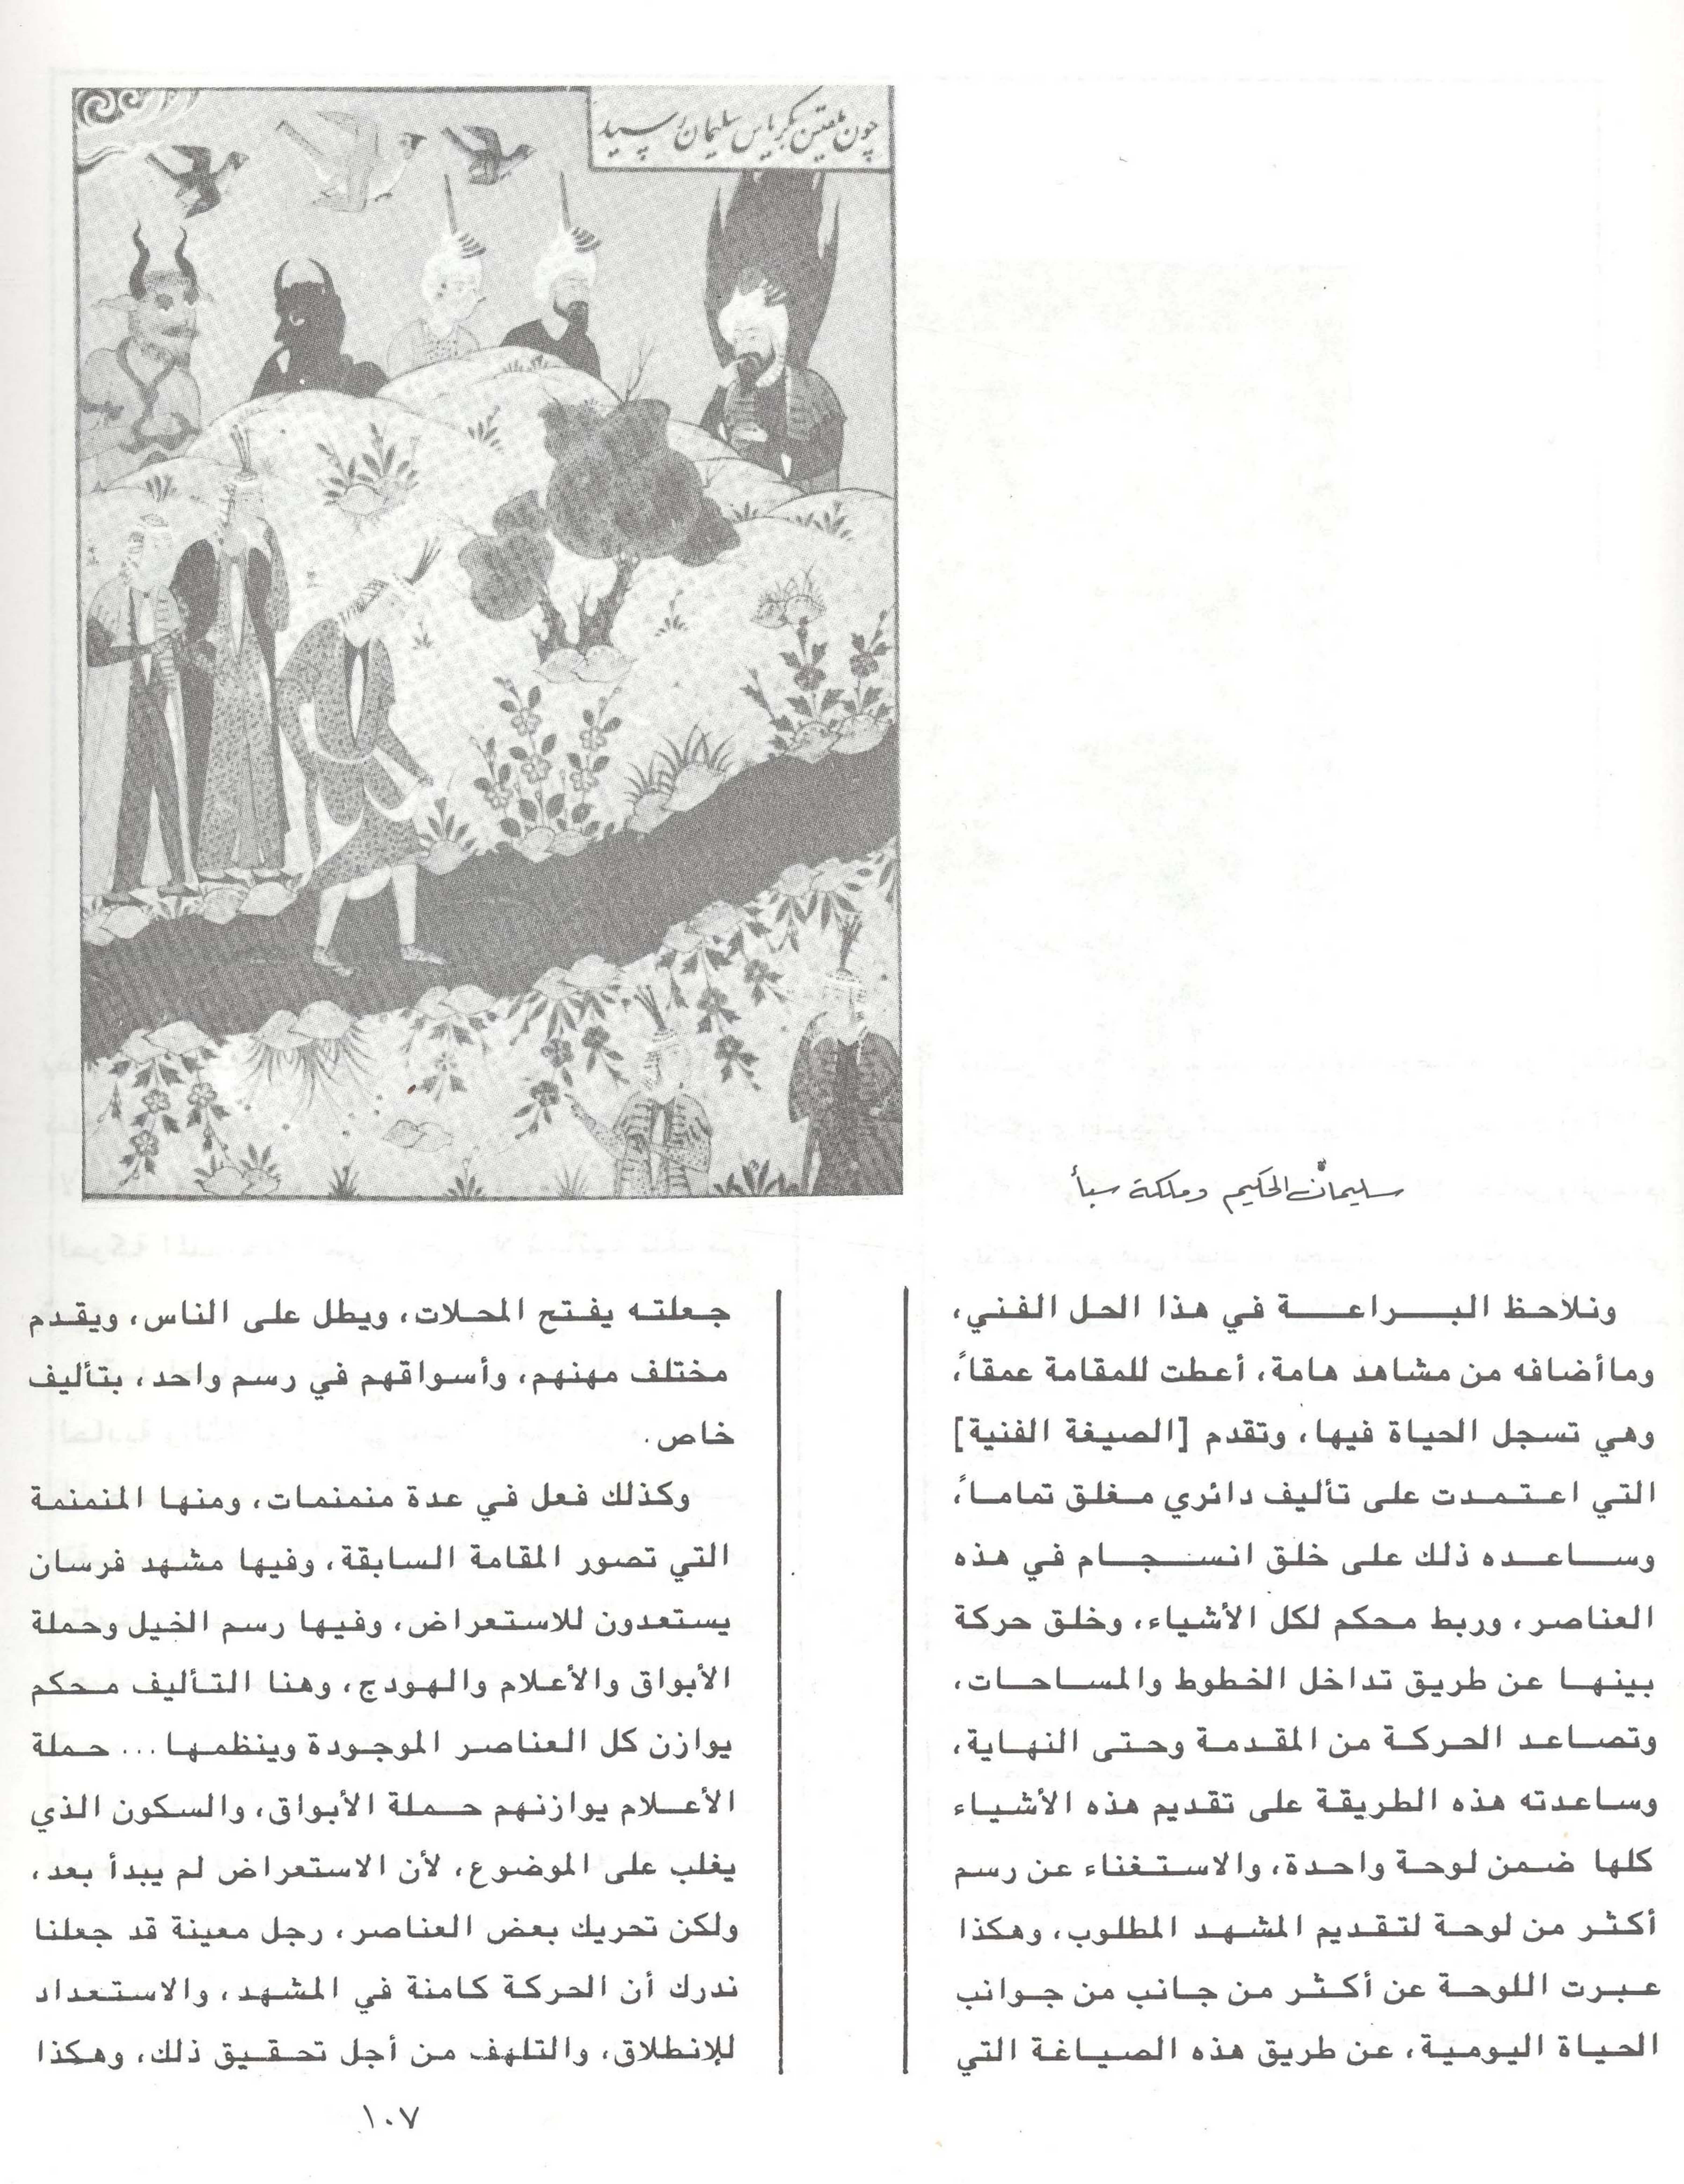 سليمان الحكيم وملكة سبأ
ونلاحظ البراعة في هذا الحل الفني،
وماأضافه من مشاهد هامة، أعطت للمقامة عمقاً،
وهي تسجل الحياة فيها، وتقدم [الصيغة الفنية]
التي اعتمدت على تأليف دائري مغلق تماماً،
وساعده ذلك على خلق انسجام في هذه
العناصر، وربط محكم لكل الأشياء، وخلق حركة
بينها عن طريق تداخل الخطوط والمساحات،
وتصاعد الحركة من المقدمة وحتى النهاية،
وساعدته هذه الطريقة على تقديم هذه الأشياء
كلها ضمن لوحة واحدة، والاستغناء عن رسم
أكثر من لوحة لتقديم المشهد المطلوب، وهكذا
عبرت اللوحة عن أكثر من جانب من جوانب
الحياة اليومية، عن طريق هذه الصياغة التي
جعلته يفتح المحلات، ويطل على الناس، ويقدم
مختلف مهنهم، وأسواقهم في رسم واحد، بتأليف
خاص.
وكذلك فعل في عدة منمنمات، ومنها المنمنمة
التي تصور المقامة السابقة، وفيها مشهد فرسان
يستعدون للاستعراض، وفيها رسم الخيل وحملة
الأبواق والأعلام والهودج، وهنا التأليف محكم
يوازن كل العناصر الموجودة وينظمها... حملة
الأعلام يوازنهم حملة الأبواق، والسكون الذي
يغلب على الموضوع، لأن الاستعراض لم يبدأ بعد،
ولكن تحريك بعض العناصر، رجل معينة قد جعلنا
ندرك أن الحركة كامنة في المشهد، والاستعداد
للإنطلاق، والتلهف من أجل تحقيق ذلك، وهكذا
١٠٧